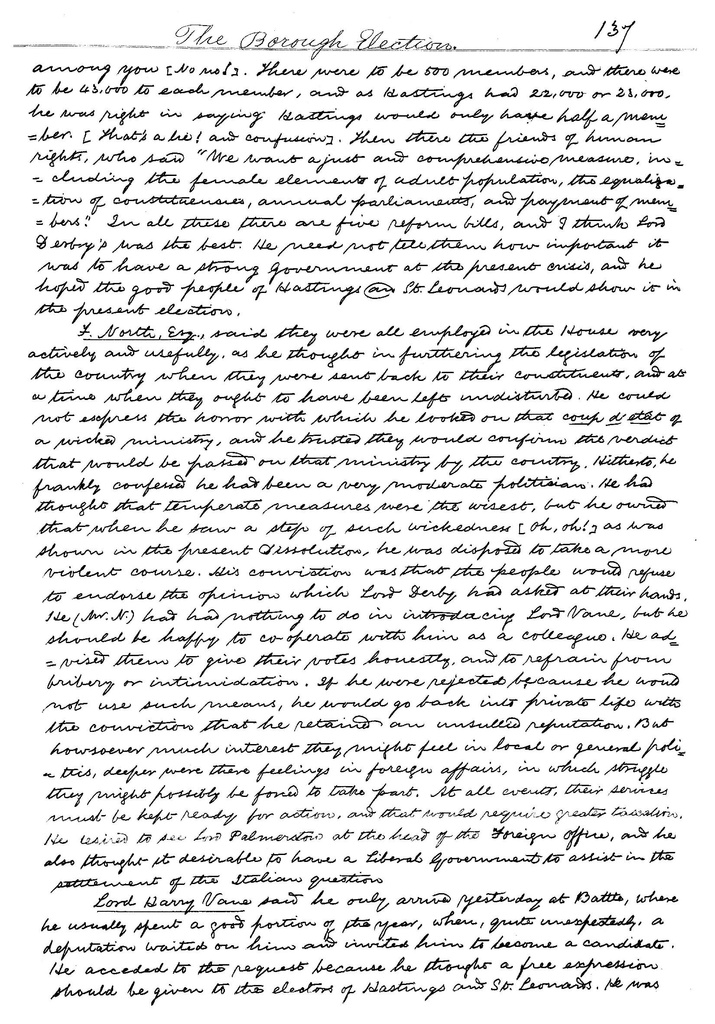 The Borough Election. 137
among you [No no!]. There were to be 500 members, and there were
to be 43,000 to each member, and as Hastings had 22,000 or 23,000,
he was right in saying Hastings would only have half a mem=
=ber. [That's a lie! and confusion]. Then there the friends of human
rights, who said "We want a just and comprehensive measure, in=
=cluding the female elements of adult population, the equaliza=
=tion of constituencies, annual parliaments, and payment of mem=
=bers". In all these there are five reform bills, and I think Lord
Derby's was the best. He need not tell them how important it
was to have a strong Government at the present crisis, and he
hoped the good people of Hastings an St. Leonards would show it in
the present election.
F. North, Esq., said they were all employed in the House very
actively and usefully, as he thought in furthering the legislation of
the country when they were sent back to their constituents, and at
a time when they ought to have been left undisturbed. He could
not express the horror with which he looked on that coup d etat of
a wicked ministry, and he trusted they would confirm the verdict
that would be passed on that ministry by the country. Hitherto, he
frankly confessed he had been a very moderate politician. He had
thought that temperate measures were the wisest, but he owned
that when he saw a step of such wickedness [Oh, oh!] as was
shown in the present Dissolution, he was disposed to take a more
violent course. His conviction was that the people would refuse
to endorse the opinion which Lord Derby had asked at their hands.
He (Mr. N.) had had nothing to do in introducing Lord Vane, but he
should be happy to co-operate with him as a colleague. He ad=
=vised them to give their votes honestly, and to refrain from
bribery or intimidation. If he were rejected because he would
not use such means, he would go back into private life with
the conviction that he retained an unsullied reputation. But
howsoever much interest they might feel in local or general poli=
=tics, deeper were there feelings in foreign affairs, in which struggle
they might possibly be forced to take part. At all events, their services
must be kept ready for action, and that would require greater taxation.
He desired to see Lord Palmerston at the head of the Foreign office, and he
also thought it desirable to have a Liberal Government to assist in the
settlement of the Italian question
Lord Harry Vane said he only arrived yesterday at Battle, where
he usually spent a good portion of the year, when, quite unexpectedly, a
deputation waited on him and invited him to become a candidate.
He acceded to the request because he thought a free expression
should be given to the electors of Hastings and St. Leonards. He was